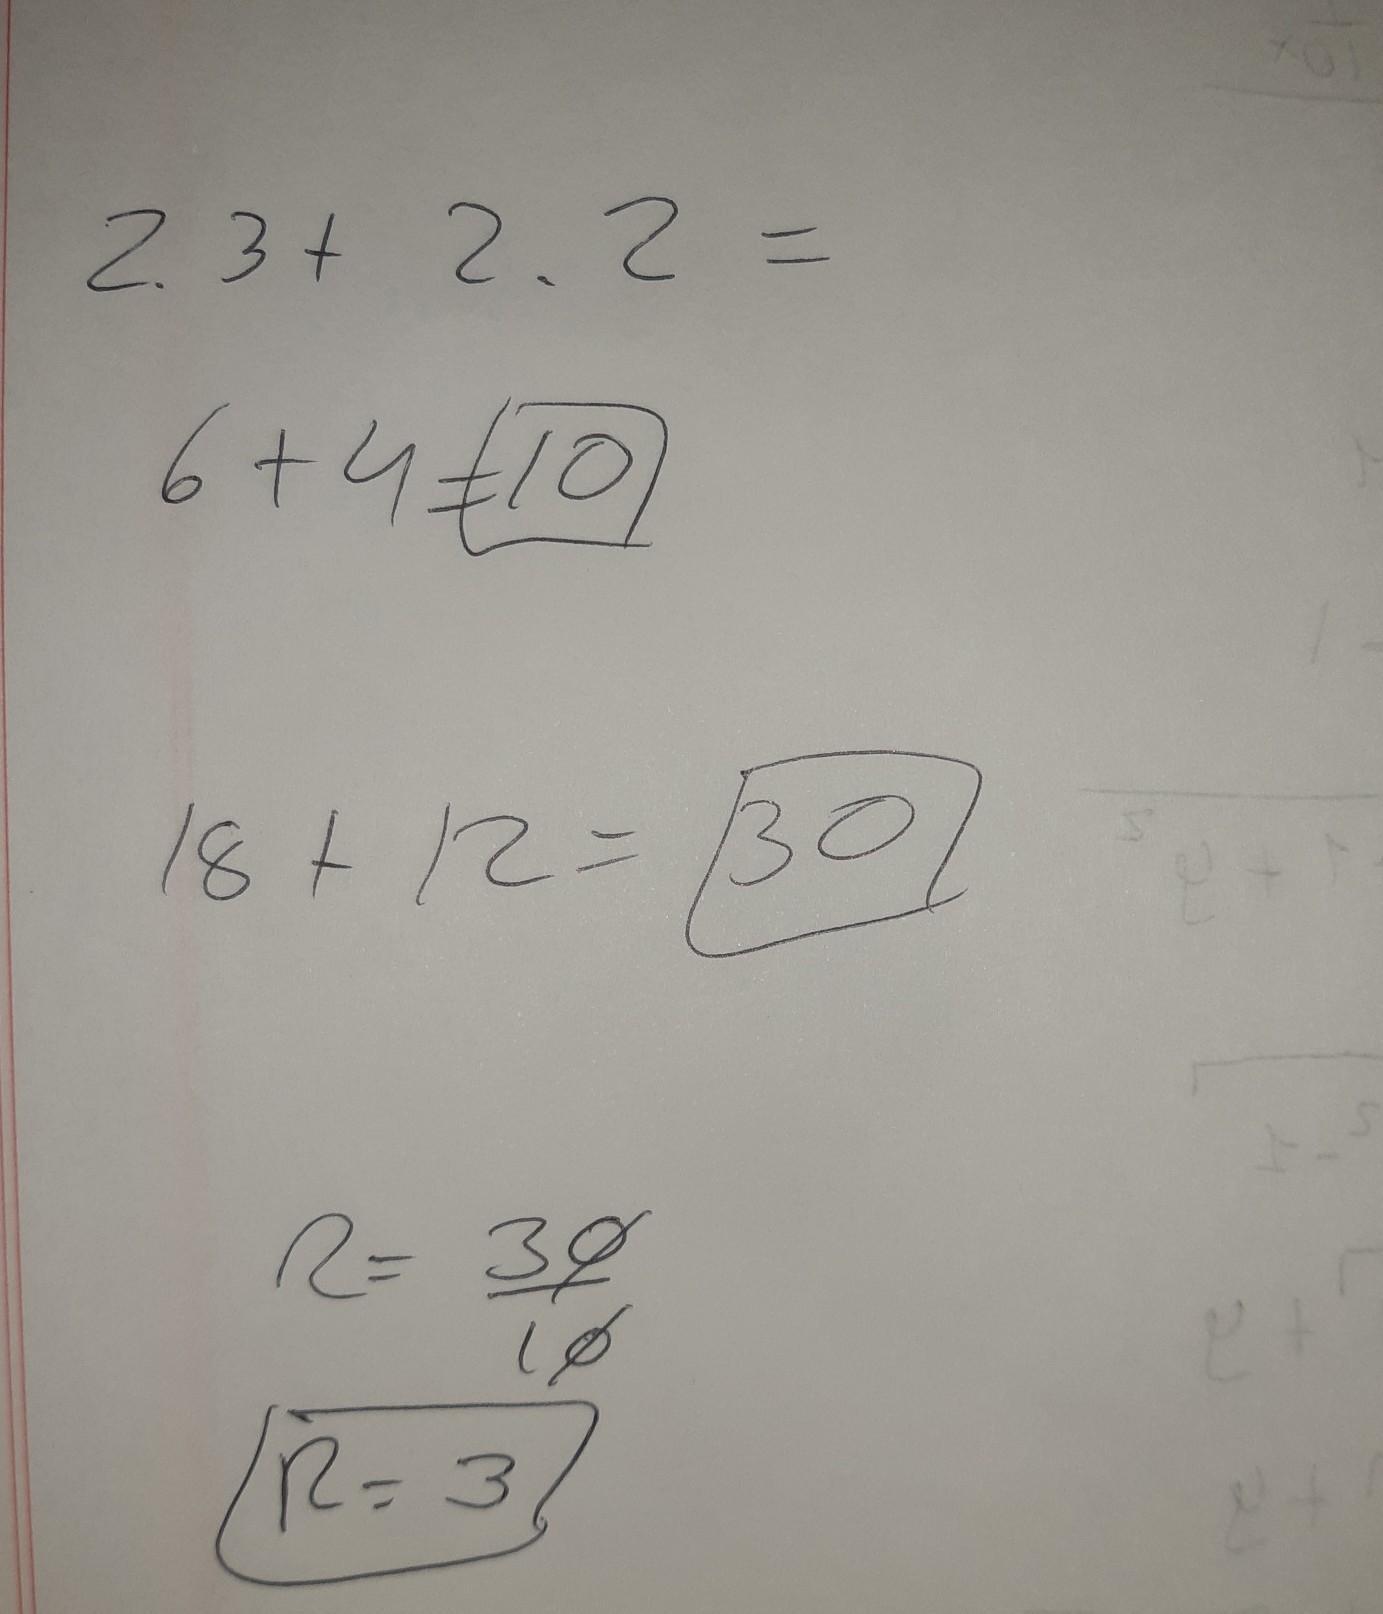 2.3+ 2.2 =
6+4=10
18 + 12 = 30
R= 30
10
R= 3